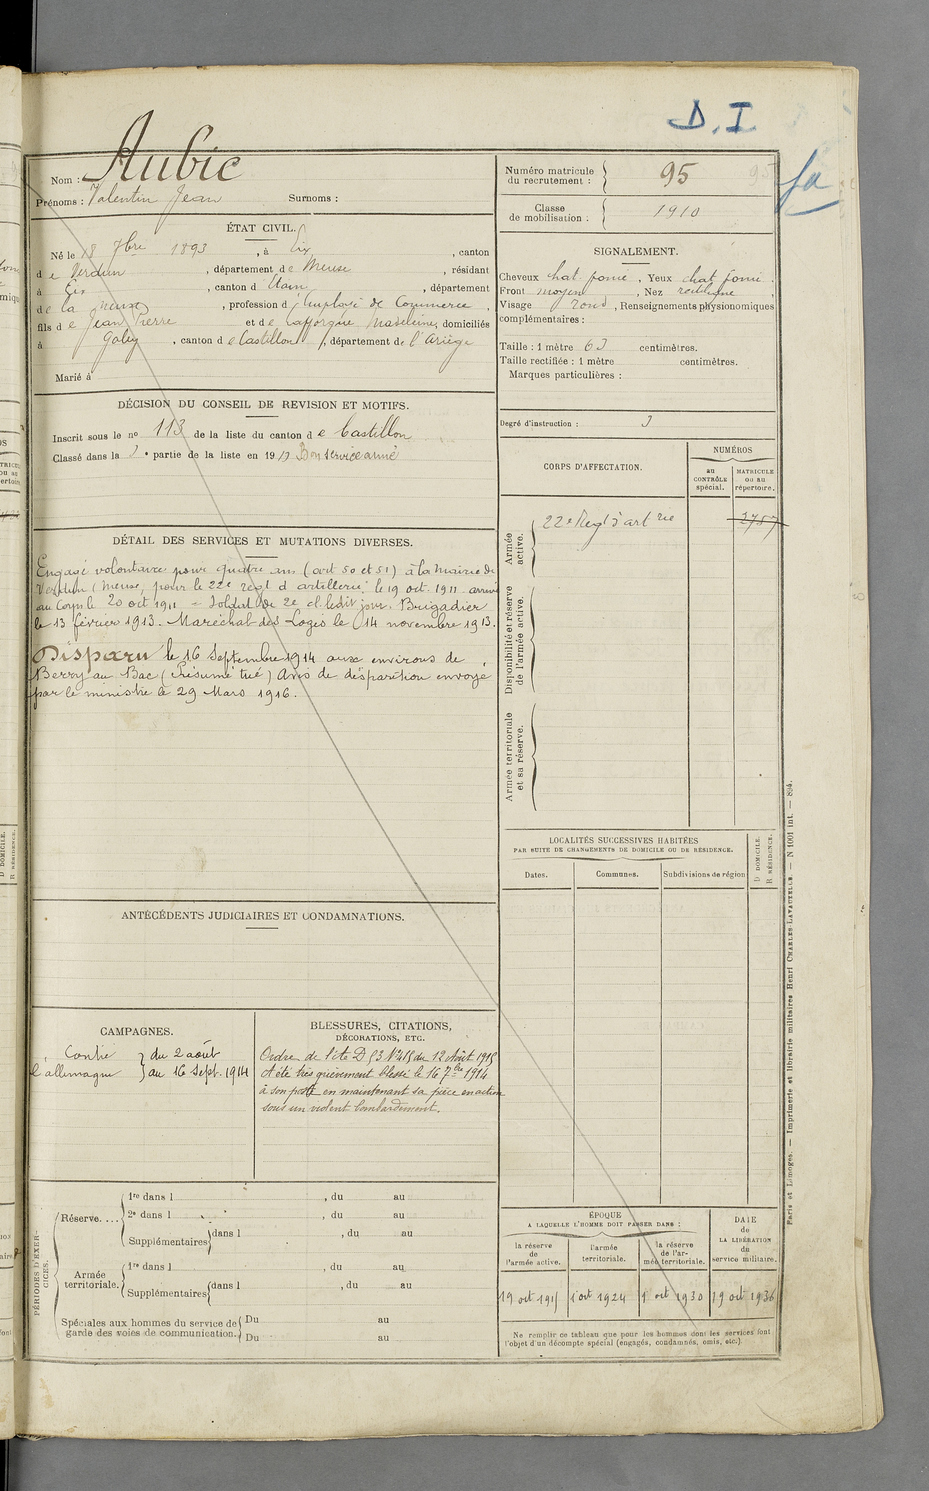 D. I
fa
Nom : Aubic
Prénoms : Valentin Jean Surnoms :
ÉTAT CIVIL.
Né le 18 7bre 1893, à Eix, canton
de Verdun, département de Meuse, résidant
à Eix, canton d Etain, département
de la Meuse, profession d'Employé de Commerce,
fils de Jean Pierre et de Lafforgue Madeleine, domiciliés
à Galey, canton de Castillon, département de l'Ariège
Marié à
DÉCISION DU CONSEIL DE REVISION ET MOTIFS.
Inscrit sous le n° 113 de la liste du canton de Castillon
Classé dans la partie de la liste en 1913 Bon service armé
DÉTAIL DES SERVICES ET MUTATIONS DIVERSES.
Engagé volontaire pour quatre ans (art 50 et 51) à la Mairie de
Verdun (Meuse, pour le 22e regt d'artillerie le 19 oct. 1911 arrivé
au Corps le 20 oct 1911 = Soldat de 2e cl. ledit jour. Brigadier
le 13 février 1913. Maréchal des Logis le 14 novembre 1913.
Disparu le 16 Septembre 1914 aux environs de
Berry au Bac (Présumé tué) Avis de disparition envoyé
par le ministre le 29 Mars 1916.
ANTÉCÉDENTS JUDICIAIRES ET CONDAMNATIONS.
CAMPAGNES.
Contre } du 2 août
l'allemagne } au 16 Sept. 1914
BLESSURES, CITATIONS,
DÉCORATIONS, ETC.
Ordre de l'été D 53 N°415 du 12 Août 1915
A été très grièvement blessé le 16 7bre 1914
à son poste en maintenant sa pièce en action
sous un violent bombardement.
PÉRIODES D'EXERCICES.
Réserve....
1re dans l , du au
2e dans l , du au
Supplémentaires dans l , du au
Armée territoriale.
1re dans l , du au
Supplémentaires dans l , du au
Spéciales aux hommes du service de
garde des voies de communication.
Du au
Du au
Numéro matricule
du recrutement : 95
Classe
de mobilisation : 1910
SIGNALEMENT.
Cheveux chat. foncé, Yeux chat foncé.
Front moyen, Nez rectiligne,
Visage rond, Renseignements physionomiques
complémentaires :
Taille : 1 mètre 63 centimètres.
Taille rectifiée : 1 mètre centimètres.
Marques particulières :
Degré d'instruction : 3
CORPS D'AFFECTATION.
NUMÉROS
au CONTRÔLE spécial.
MATRICULE ou au répertoire.
Armée active.
22e Regt d'artrie 2757
Disponibilité et réserve de l'armée active.
Armée territoriale et sa réserve.
LOCALITÉS SUCCESSIVES HABITÉES
PAR SUITE DE CHANGEMENTS DE DOMICILE OU DE RÉSIDENCE.
Dates. Communes. Subdivisions de région
D DOMICILE.
R RÉSIDENCE.
ÉPOQUE
A LAQUELLE L'HOMME DOIT PASSER DANS :
la réserve de l'armée active.
l'armée territoriale.
la réserve de l'armée territoriale.
DATE de LA LIBÉRATION du service militaire.
19 oct 1915 1 oct 1924 1 oct 1930 19 oct 1936
Ne remplir ce tableau que pour les hommes dont les services font
l'objet d'un décompte spécial (engagés, condamnés, omis, etc.)
Paris et Limoges. — Imprimerie et librairie militaires Henri CHARLES-LAVAUZELLE. — N 1001 int. — 894.